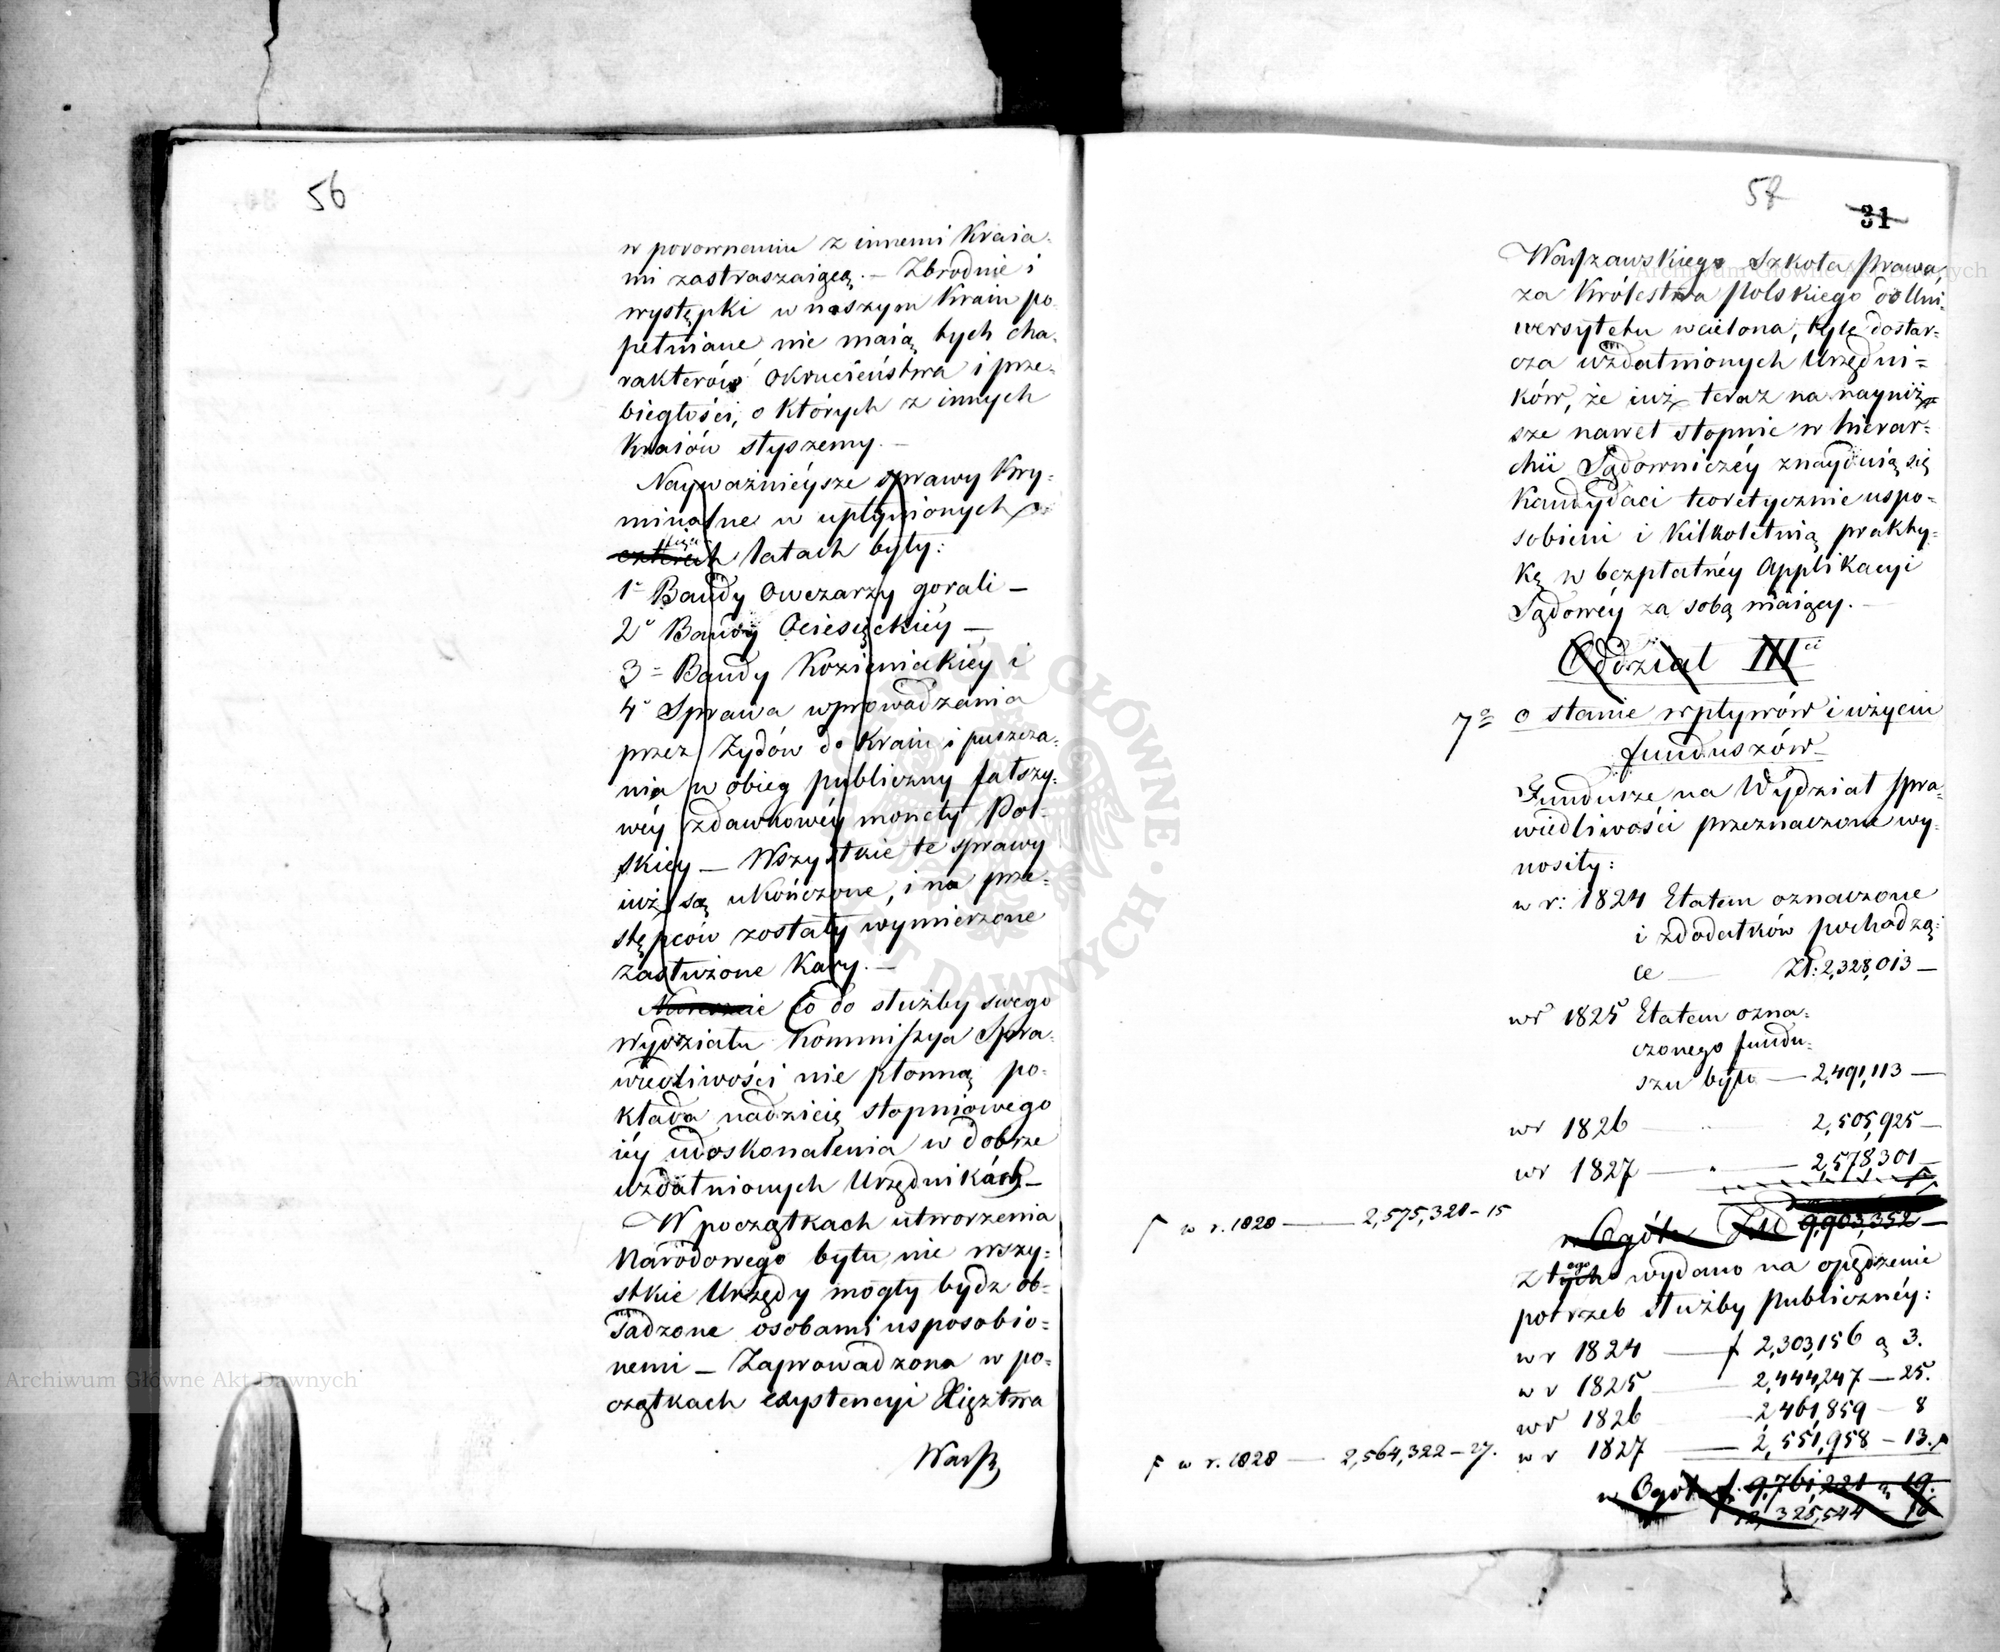 56
w porownaniu z innemi Kraia-
mi zastraszaiącą. — Zbrodnie i
występki w naszym Kraiu po-
pełniane nie maią tych cha-
rakterów okrucieństwa i prze-
biegłości, o których z innych
Kraiów słyszemy. —
Nayważnieysze sprawy Kry-
minalne w upłynionych
czterech latach były:
1° Bandy Owczarzy gorali —
2° Bandy Ociesęckiéy —
3 = Bandy Kozieniakiéy i
4° Sprawa wprowadzania
przez Żydów do Kraiu i puszcza-
nia w obieg publiczny fałszy-
wéy zdawkowéy monety Pol-
skiey — Wszystkie te sprawy
iuż są ukończone, i na prze-
stępców zostały wymierzone
zasłużone Kary. —
Nareszcie Co do służby swego
wydziału Kommissya Spra-
wiedliwości nie płonną po-
kłada nadzieię stopniowego
iéy udoskonalenia w dobrze
uzdatnionych Urzędnikach —
W początkach utworzenia
Narodowego bytu nie wszy-
stkie Urzędy mogły bydz ob-
sadzone osobami usposobio-
nemi — Zaprowadzona w po-
czątkach exystencyi Xięztwa
Warsz
57
31
Warszawskiego Szkoła Prawa,
za Królestwa Polskiego do Uni-
wersytetu wcielona, tyle dostar-
cza uzdatnionych Urzędni-
ków, że iuż teraz na nayniż-
sze nawet stopnie w hierar-
chii Sądowniczéy znayduią się
Kandydaci teoretycznie uspo-
sobieni i Kilkoletnią prakty-
kę w bezpłatnéy Applikacyi
Sądowéy za sobą maiący. —
Oddział III ci
7° o stanie wpływów i użyciu
funduszów
Fundusze na Wydział Spra-
wiedliwości przeznaczone wy-
nosiły:
w r: 1824 Etatem oznaczone
i z dodatków pochodzą-
ce — Zł: 2,328,013 —
w r 1825 Etatem ozna-
czonego fundu-
szu było — 2,491,113 —
w r 1826 — 2,505,925 —
w r 1827 — 2,578,301 —
w r. 1828 — 2,575,320 — 15
w Ogóle Zł 9,903,352 —
Z tych wydano na opędzenie
potrzeb służby Publicznéy:
w r 1824 — f 2,303,156 g 3.
w r 1825 — 2,444,247 — 25.
w r 1826 — 2,461,859 — 8
w r 1827 — 2,551,958 — 13.
w r. 1828 — 2,564,322 — 27.
w Ogóle f. 9,761,221 g 19.
12,325,544 — 16
Archiwum Główne Akt Dawnych
Archiwum Główne Akt Dawnych
ARCHIWUM GŁÓWNE AKT DAWNYCH